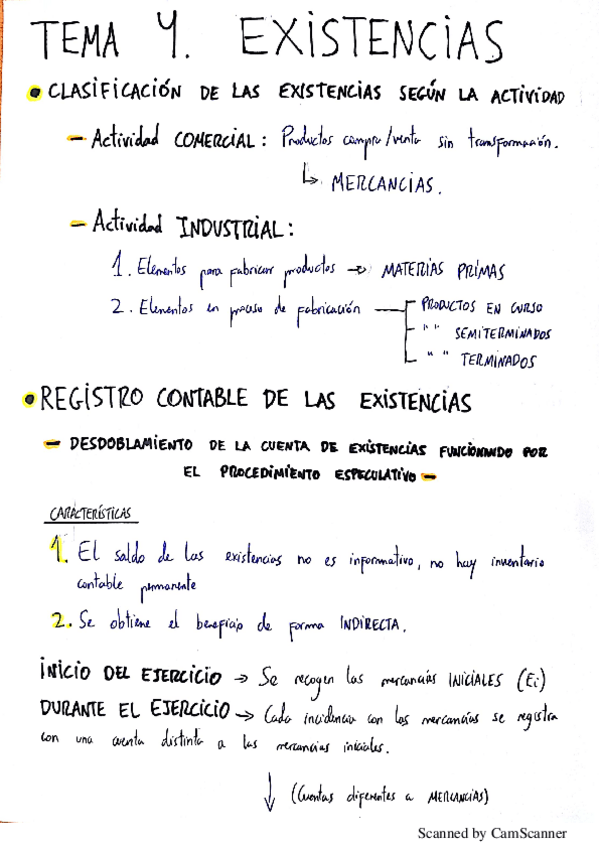 TEMA 4. EXISTENCIAS
• CLASIFICACIÓN DE LAS EXISTENCIAS SEGÚN LA ACTIVIDAD
- Actividad COMERCIAL: Productos compra/venta sin transformación.
↳ MERCANCIAS.
- Actividad INDUSTRIAL:
1. Elementos para fabricar productos → MATERIAS PRIMAS
2. Elementos en proceso de fabricación — PRODUCTOS EN CURSO
" " SEMITERMINADOS
" " TERMINADOS
• REGISTRO CONTABLE DE LAS EXISTENCIAS
- DESDOBLAMIENTO DE LA CUENTA DE EXISTENCIAS FUNCIONANDO POR
EL PROCEDIMIENTO ESPECULATIVO -
CARACTERÍSTICAS
1. El saldo de las existencias no es informativo, no hay inventario
contable permanente
2. Se obtiene el beneficio de forma INDIRECTA.
INICIO DEL EJERCICIO → Se recogen las mercancías INICIALES (Ei)
DURANTE EL EJERCICIO → Cada incidencia con las mercancías se registra
con una cuenta distinta a las mercancías iniciales.
↓ (Cuentas diferentes a MERCANCÍAS)
Scanned by CamScanner